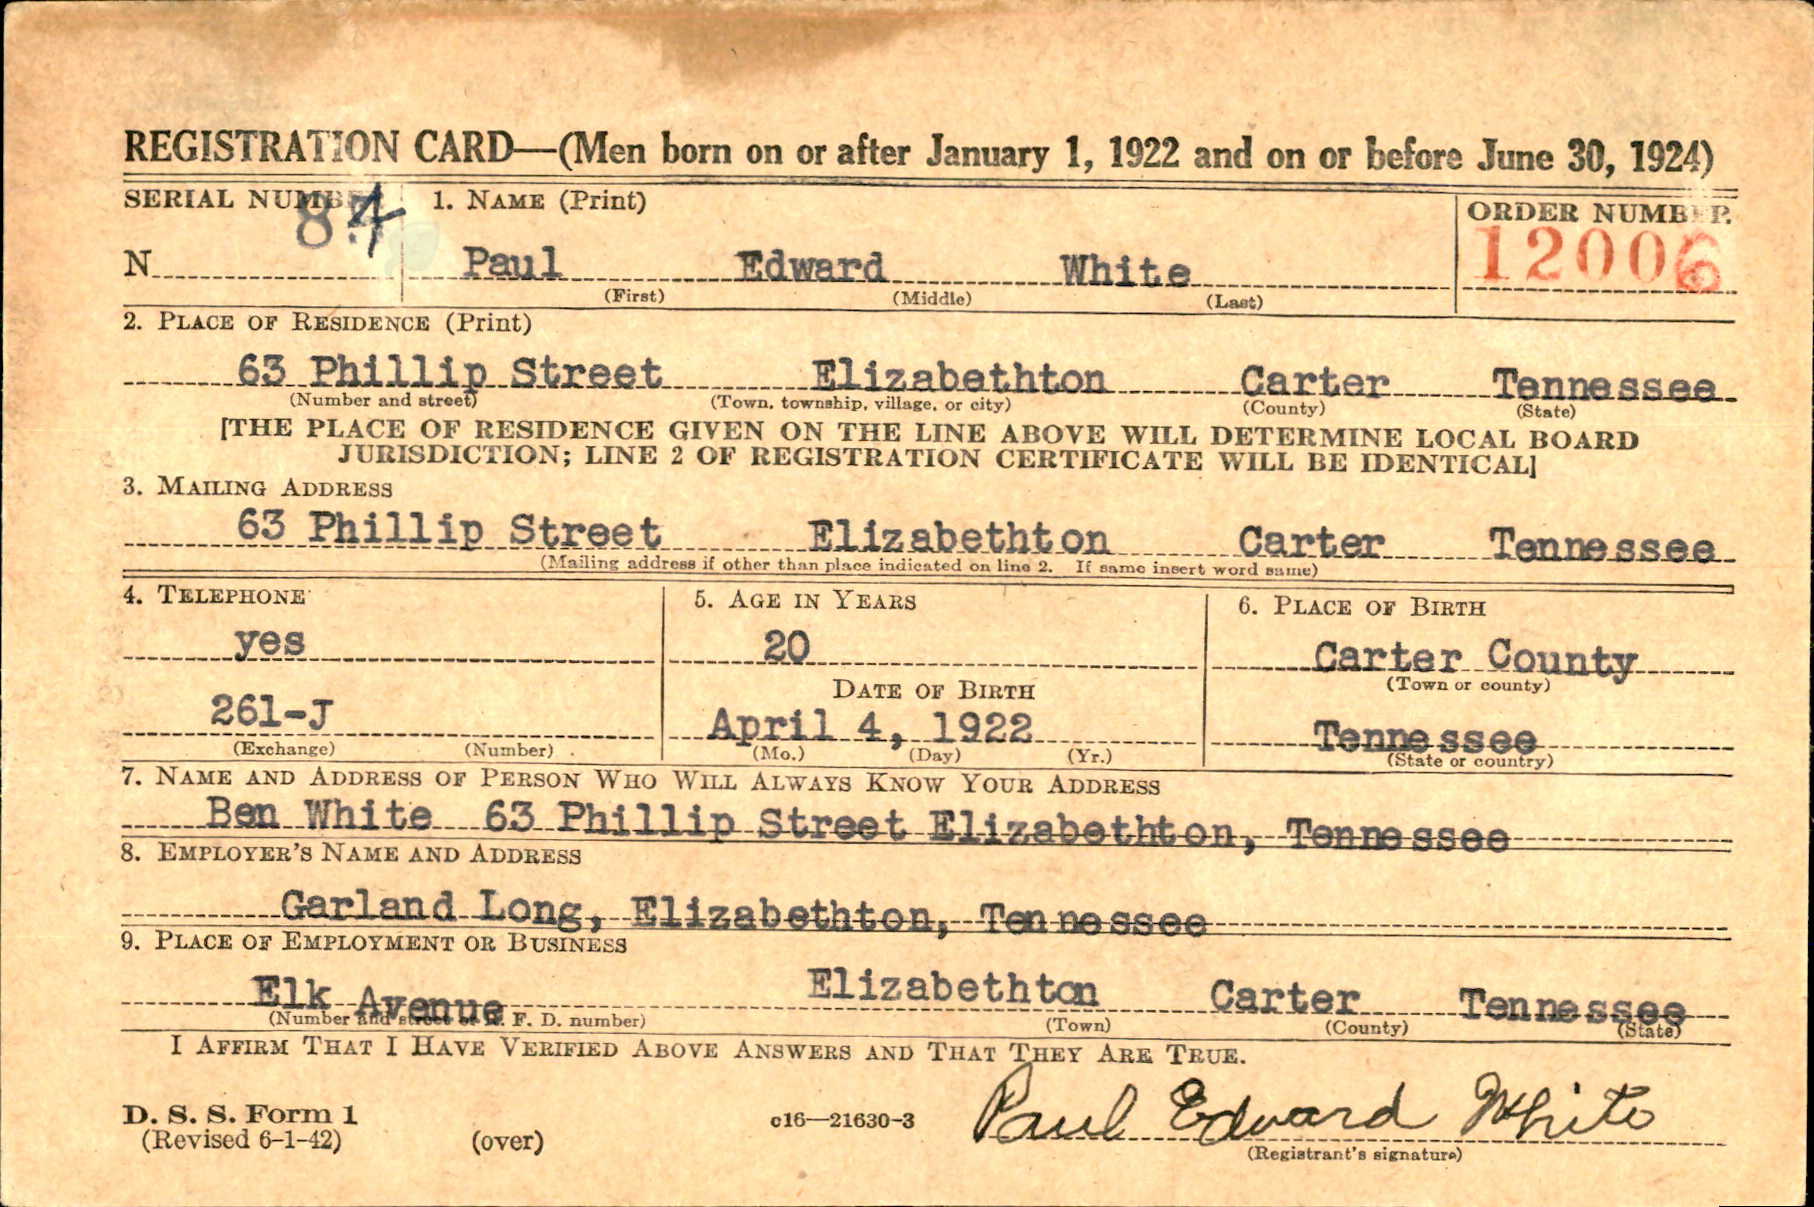 REGISTRATION CARD—(Men born on or after January 1, 1922 and on or before June 30, 1924)
SERIAL NUMBE 1. NAME (Print) ORDER NUMBER
84 12006
N Paul Edward White
(First) (Middle) (Last)
2. PLACE OF RESIDENCE (Print)
63 Phillip Street Elizabethton Carter Tennessee
(Number and street) (Town, township, village, or city) (County) (State)
[THE PLACE OF RESIDENCE GIVEN ON THE LINE ABOVE WILL DETERMINE LOCAL BOARD
JURISDICTION; LINE 2 OF REGISTRATION CERTIFICATE WILL BE IDENTICAL]
3. MAILING ADDRESS
63 Phillip Street Elizabethton Carter Tennessee
(Mailing address if other than place indicated on line 2. If same insert word same)
4. TELEPHONE 5. AGE IN YEARS 6. PLACE OF BIRTH
yes 20 Carter County
DATE OF BIRTH (Town or county)
261-J April 4, 1922 Tennessee
(Exchange) (Number) (Mo.) (Day) (Yr.) (State or country)
7. NAME AND ADDRESS OF PERSON WHO WILL ALWAYS KNOW YOUR ADDRESS
Ben White 63 Phillip Street Elizabethton, Tennessee
8. EMPLOYER'S NAME AND ADDRESS
Garland Long, Elizabethton, Tennessee
9. PLACE OF EMPLOYMENT OR BUSINESS
Elk Avenue Elizabethton Carter Tennessee
(Number and street or R. F. D. number) (Town) (County) (State)
I AFFIRM THAT I HAVE VERIFIED ABOVE ANSWERS AND THAT THEY ARE TRUE.
D. S. S. Form 1 c16—21630-3 Paul Edward White
(Revised 6-1-42) (over) (Registrant's signature)